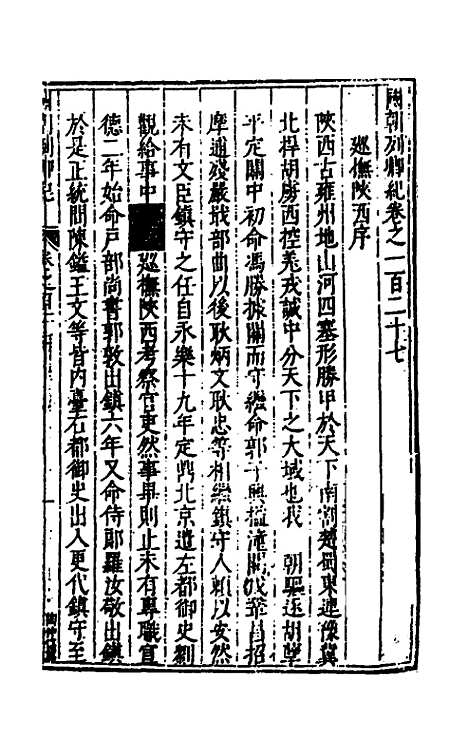 國朝列卿紀卷之一百二十七
巡撫陝西序
陝西古雍州地山河四塞形勝甲於天下南窮楚蜀東連豫冀
北捍胡虜西控羗戎誠中分天下之大域也我 朝驅逐胡孽
平定關中初命馮勝據關而守繼命郭子興 潼關 招
摩通 嚴 部曲以後耿炳文耿忠等相繼鎮守人頼以安然
未有文臣鎮守之任自永樂十九年定鼎北京遣左都御史劉
觀給事中 巡撫陝西考察官吏然事畢則止未有專職宣
德二年始命戶部尚書郭敦出鎮六年又命侍郎羅汝敬出鎮
於是正統間陳鎰王文等皆內臺右都御史出入更代鎮守至